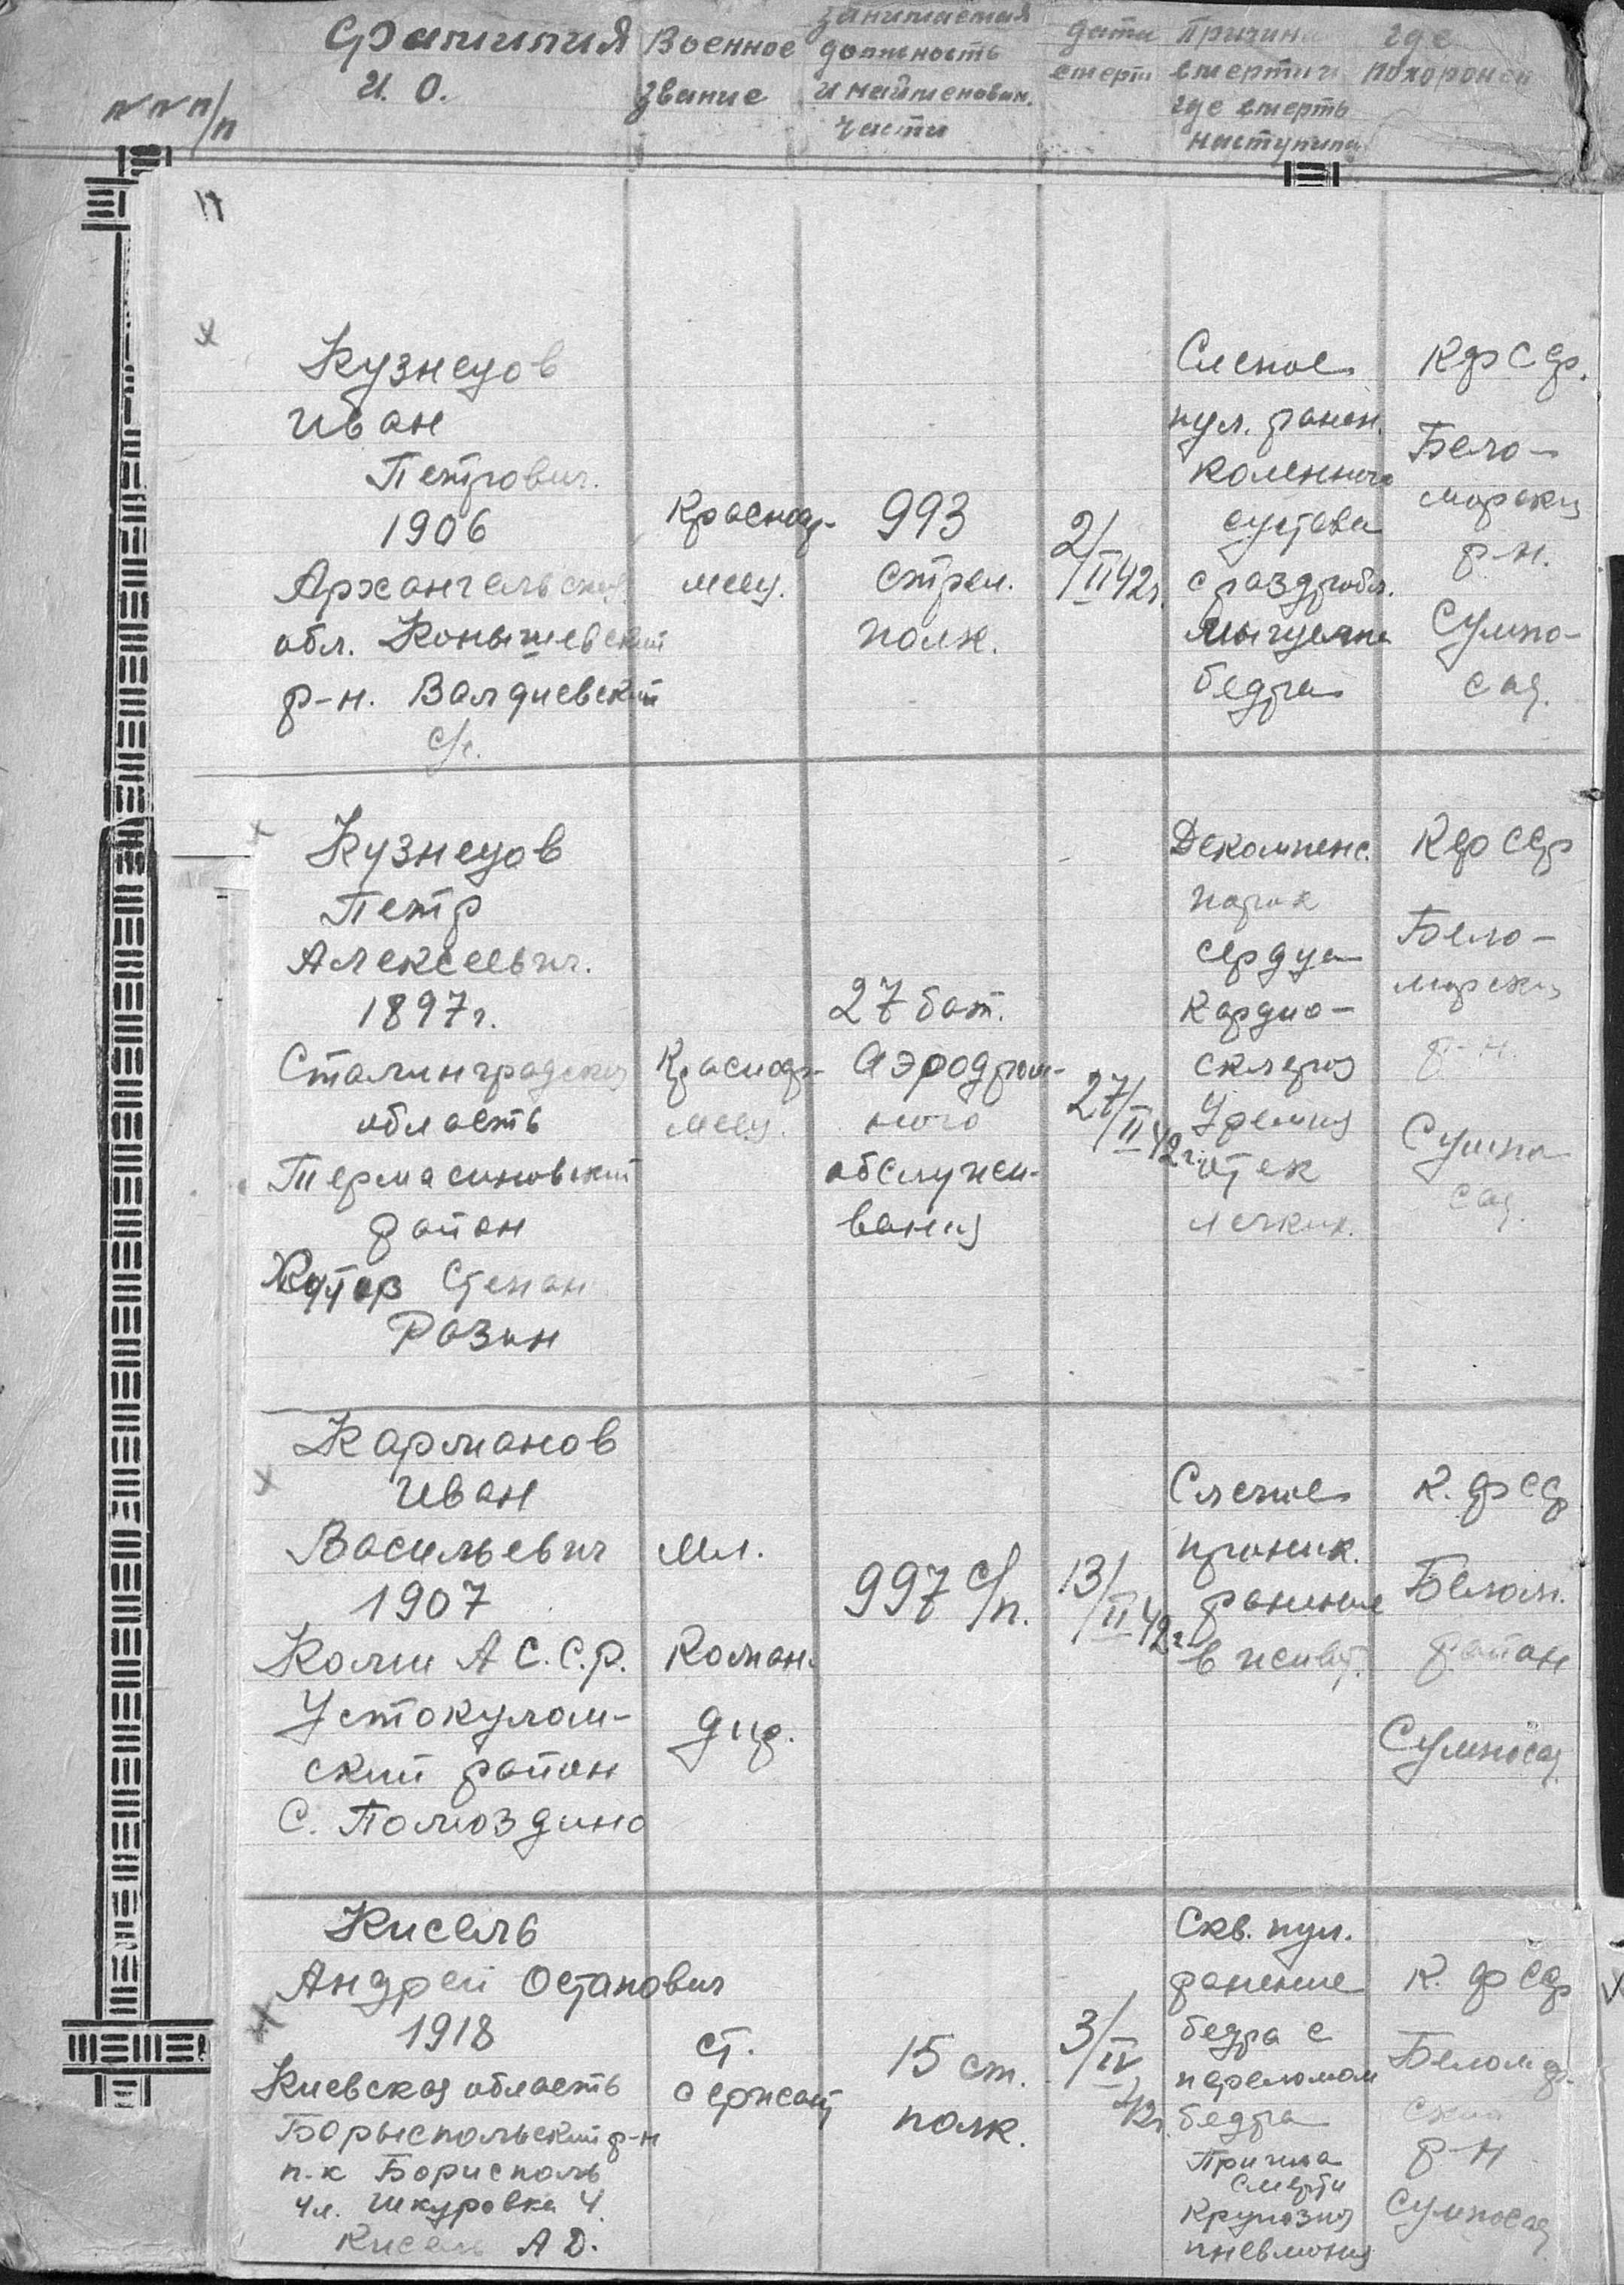 №№ п/п
Фамилия
И. О.
Военное
звание
занимаемая
должность
и наименован.
части
дата
смерти
Причина
смерти и
где смерть
наступила
где
похоронен
Кузнецов
Иван
Петрович.
1906
Архангельская
обл. Конышевский
р-н. Валдиевский
с/с.
Красноар-
меец.
993
стрел.
полк.
2/II 42г.
Слепое
пул. ранен.
коленного
сустава
с раздробл.
мыщелка
бедра
КФССР.
Бело-
морский
р-н.
Сумпо-
сад.
Кузнецов
Петр
Алексеевич.
1897г.
Сталинградская
область
Термасиновский
район
Хутор Степан
Разин
Красноар-
меец.
27 бат.
Аэродром-
ного
обслужи-
вания
27/II 42г.
Декомпенс.
порок
сердца
Кардио-
склероз
Уремия
отек
легких.
КФССР
Бело-
морский
р-н.
Сумпо-
сад.
Карманов
Иван
Васильевич
1907
Коми А С.С.Р.
Устокулом-
ский район
С. Помоздино
Мл.
Коман-
дир.
997 с/п.
13/II 42г.
Слепое
проник.
ранение
в живот.
К. ФССР
Белом.
район
Сумпосад
Кисель
Андрей Остапович
1918
Киевская область
Борыспольский р-н
п-к Борисполь
ул. Шкуровка 4
Кисель А Д.
ст.
сержант
15 ст.
полк.
3/IV 42г.
Скв. пул.
ранение
бедра с
переломом
бедра
Причина
смерти
Крупозная
пневмония
К. ФССР
Беломор-
ский
р-н
Сумпосад